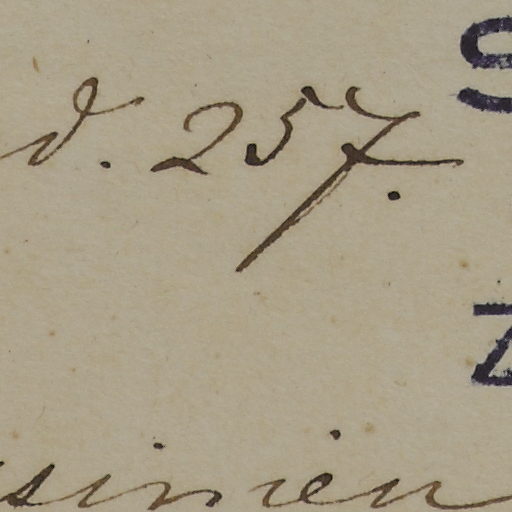 d. 257.
S
Z
sinien